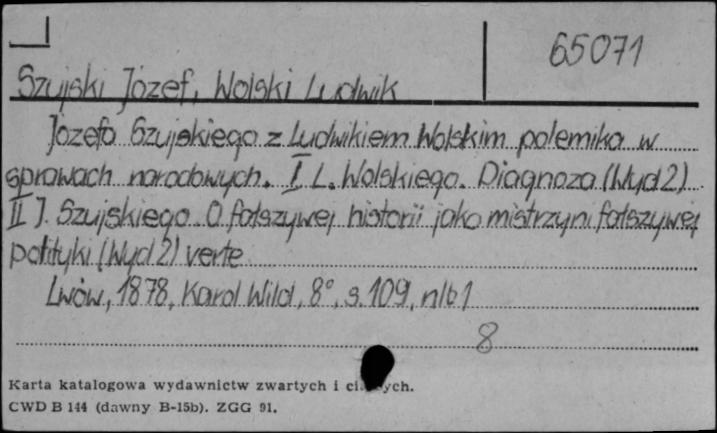 65071
Szujski Józef, Wolski Ludwik
Józefa Szujskiego z Ludwikiem Wolskim polemika w
sprawach narodowych. I L. Wolskiego. Diagnoza (Wyd 2)
II J. Szujskiego O fałszywej historii jako mistrzyni fałszywej
polityki (Wyd 2) verte
Lwów, 1878, Karol Wild, 8°, s. 109, nlb 1
8
Karta katalogowa wydawnictw zwartych i
CWD B 144 (dawny B-15b). ZGG 91.